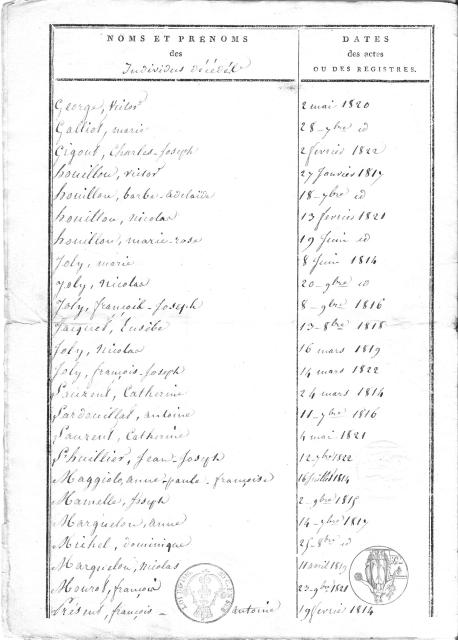 NOMS ET PRENOMS
des
Individus décédés
DATES
des actes
OU DES REGISTRES.
George, victor 2 mai 1820
Galliot, marie 28 - 9bre id
Gigout, Charles-Joseph 2 fevrier 1822
houillon, victor 27 Janvier 1817
houillon, barbe-adelaide 18 - 7bre id
houillon, nicolas 13 fevrier 1821
houillon, marie-rose 19 Juin id
Joly, marie 8 Juin 1814
Joly, Nicolas 20 - 9bre id
Joly, françois-Joseph 8 - 9bre 1816
Jacquot, Eusèbe 13 - 8bre 1818
Joly, Nicolas 16 mars 1819
Joly, françois-Joseph 14 mars 1822
Laurent, Catherine 24 mars 1814
antoine 11 - 7bre 1816
Laurent, Catherine 4 mai 1821
Lhuillier, Jean-Joseph 12 - 9bre 1822
Maggiolo, anne-paule-françoise 16 Juillet 1814
Mamelle, Joseph 2 - 9bre 1815
Marquelon, anne 14 - 9bre 1817
Michel, dominique 25 - 8bre id
Marquelon, nicolas 11 avril 1819
Mourot, françois 23 - 9bre 1821
françois-antoine 19 fevrier 1814